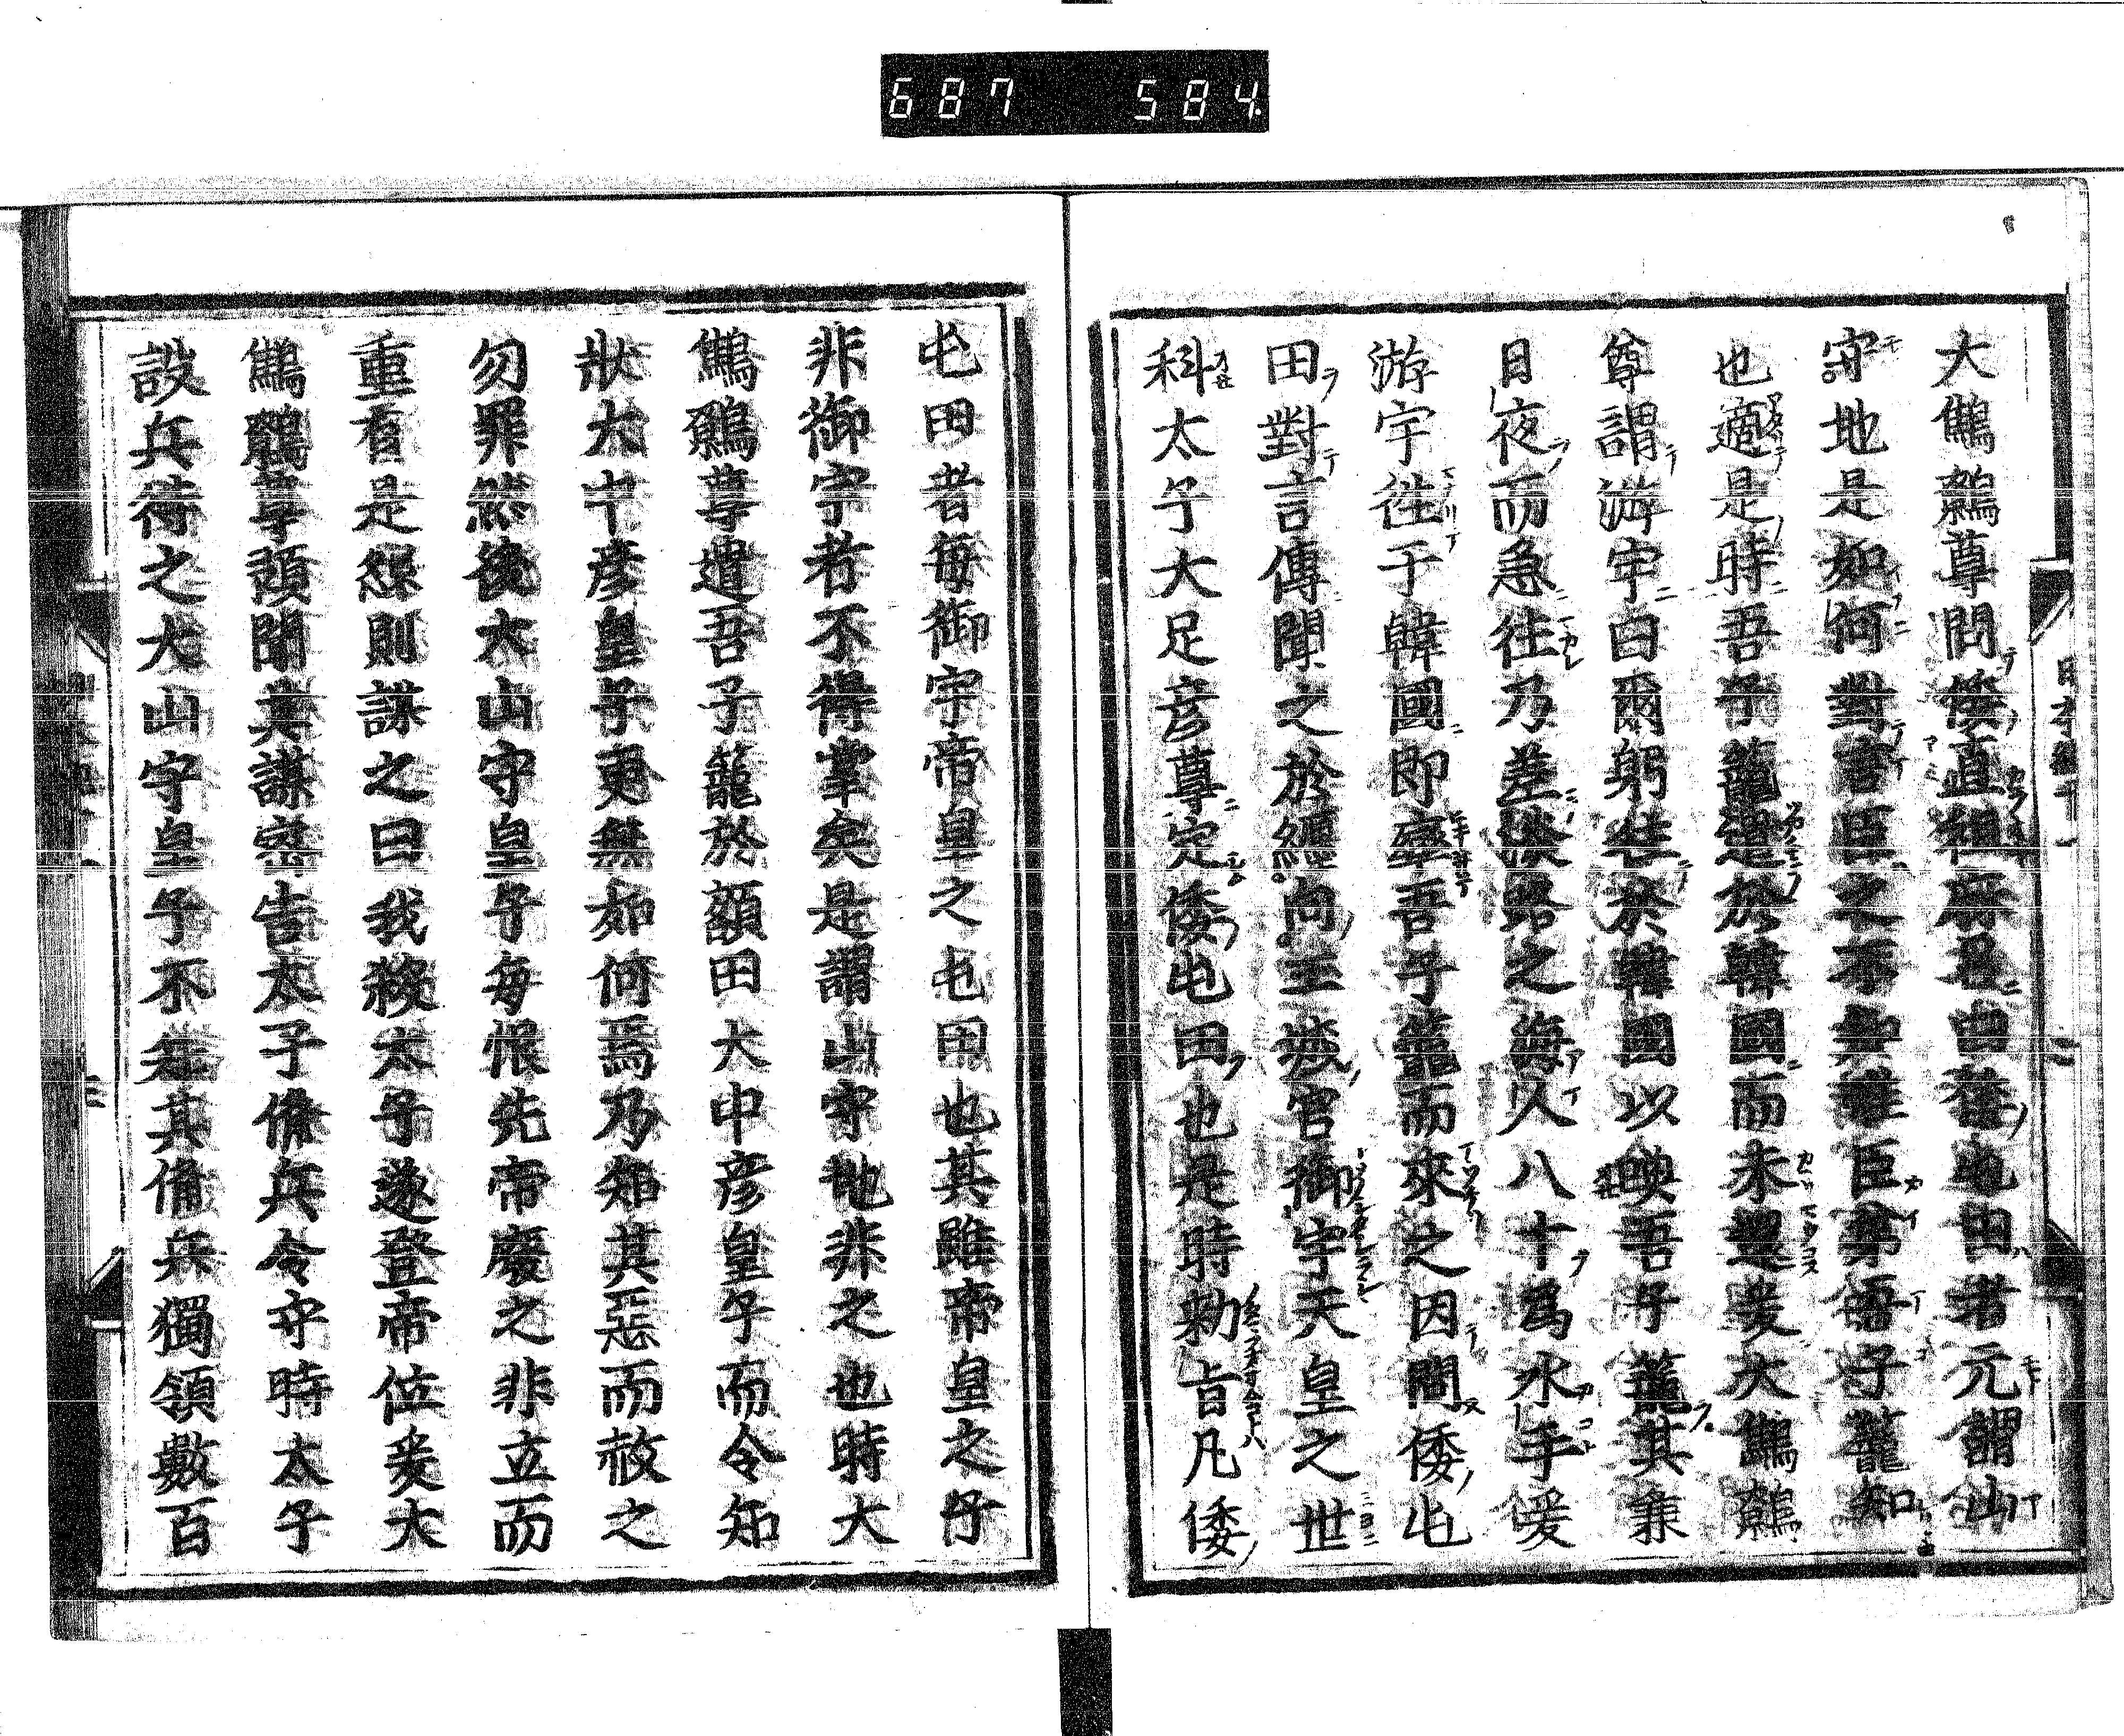 687 584
大鷦鷯尊問倭直祖麻呂曰倭屯田者元謂山
守地是如何對言臣之不知唯臣弟吾子籠知
也適是時吾子籠遣於韓國而未還爰大鷦鷯
尊謂淤宇曰爾躬往於韓國以喚吾子籠其兼
日夜而急往乃差淡路之海人八十為水手爰
淤宇往于韓國即率吾子籠而來之因問倭屯
田對言傳聞之於纏向玉城宮御宇天皇之世
科太子大足彦尊定倭屯田也是時勅旨凡倭
屯田者毎御宇帝皇之屯田也其雖帝皇之子
非御宇者不得掌矣是謂山守地非之也時大
鷦鷯尊遣吾子籠於額田大中彦皇子而令知
狀大中彦皇子更無如何焉乃知其惡而赦之
勿罪然後大山守皇子毎恨先帝廢之非立而
重有是怨則謀之曰我殺太子遂登帝位爰大
鷦鷯尊預聞其謀密告太子備兵令守時太子
設兵待之大山守皇子不知其備兵獨領數百